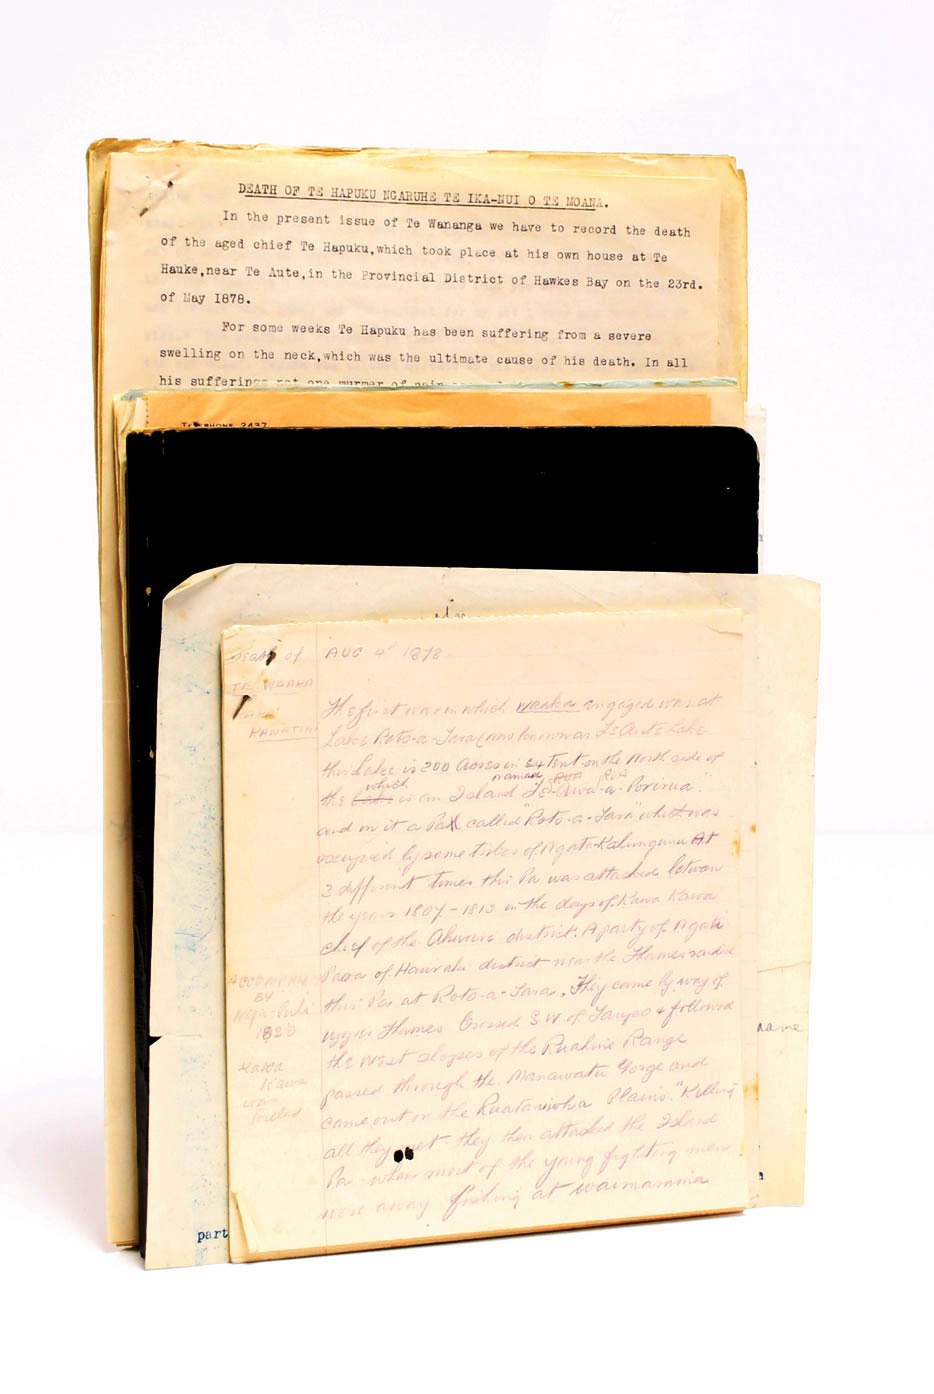 DEATH OF TE HAPUKU NGARUHE TE IKA-NUI O TE MOANA.
In the present issue of Te Wananga we have to record the death
of the aged chief Te Hapuku,which took place at his own house at Te
Hauke,near Te Aute,in the Provincial District of Hawkes Bay on the 23rd.
of May 1878.
For some weeks Te Hapuku has been suffering from a severe
swelling on the neck,which was the ultimate cause of his death. In all
his sufferings not one murmer of pain
TELEPHONE 2437
Death of
TE WAAKA
KAWATINI
AUG 4th 1878
The first war in which Waaka engaged was at
Lake Roto-a-Tara (now known as Te Aute Lake
this Lake is 200 Acres in Extent on the North side of
the Lake which is an Island named Te Awa-a-Porirua."
RUA RUA
and on it a Pa called "Roto-a-Tara" which was
occupied by some tribes of Ngati-Kahungunu At
3 different times this Pa was attacked between
the years 1807-1813 in the days of Kawa Kawa
chief of the Ahuriri district. A party of Ngati
Paoa of Hauraki district near the Thames raided
this Pa at Roto-a-Tara. They came by way of
upper Thames Crossed S W of Taupo & followed
the West slopes of the Ruahine Range
passed through the Manawatu Gorge and
came out on the Ruataniwha Plains. "Killing
all they met - they then attacked the Island
Pa - when most of the young fighting men
were away fishing at Waimarama
ACCOMPANIED
BY
Nga-Puhi
1820
Kawa
Kawa
was
killed
name
part